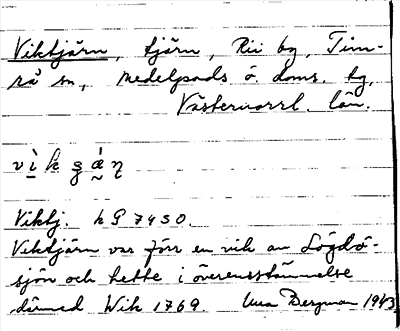 Viktjärn, tjärn, Rii by, Tim-
rå sn, Medelpads ö. doms. tg,
Västernorrl. län.
v ì k ʂ ä́ ɳ
Viktj. h G 7450.
Viktjärn var förr en vik av Lögdö-
sjön och hette i överensstämmelse
därmed Wik 1769. Bergman 1943